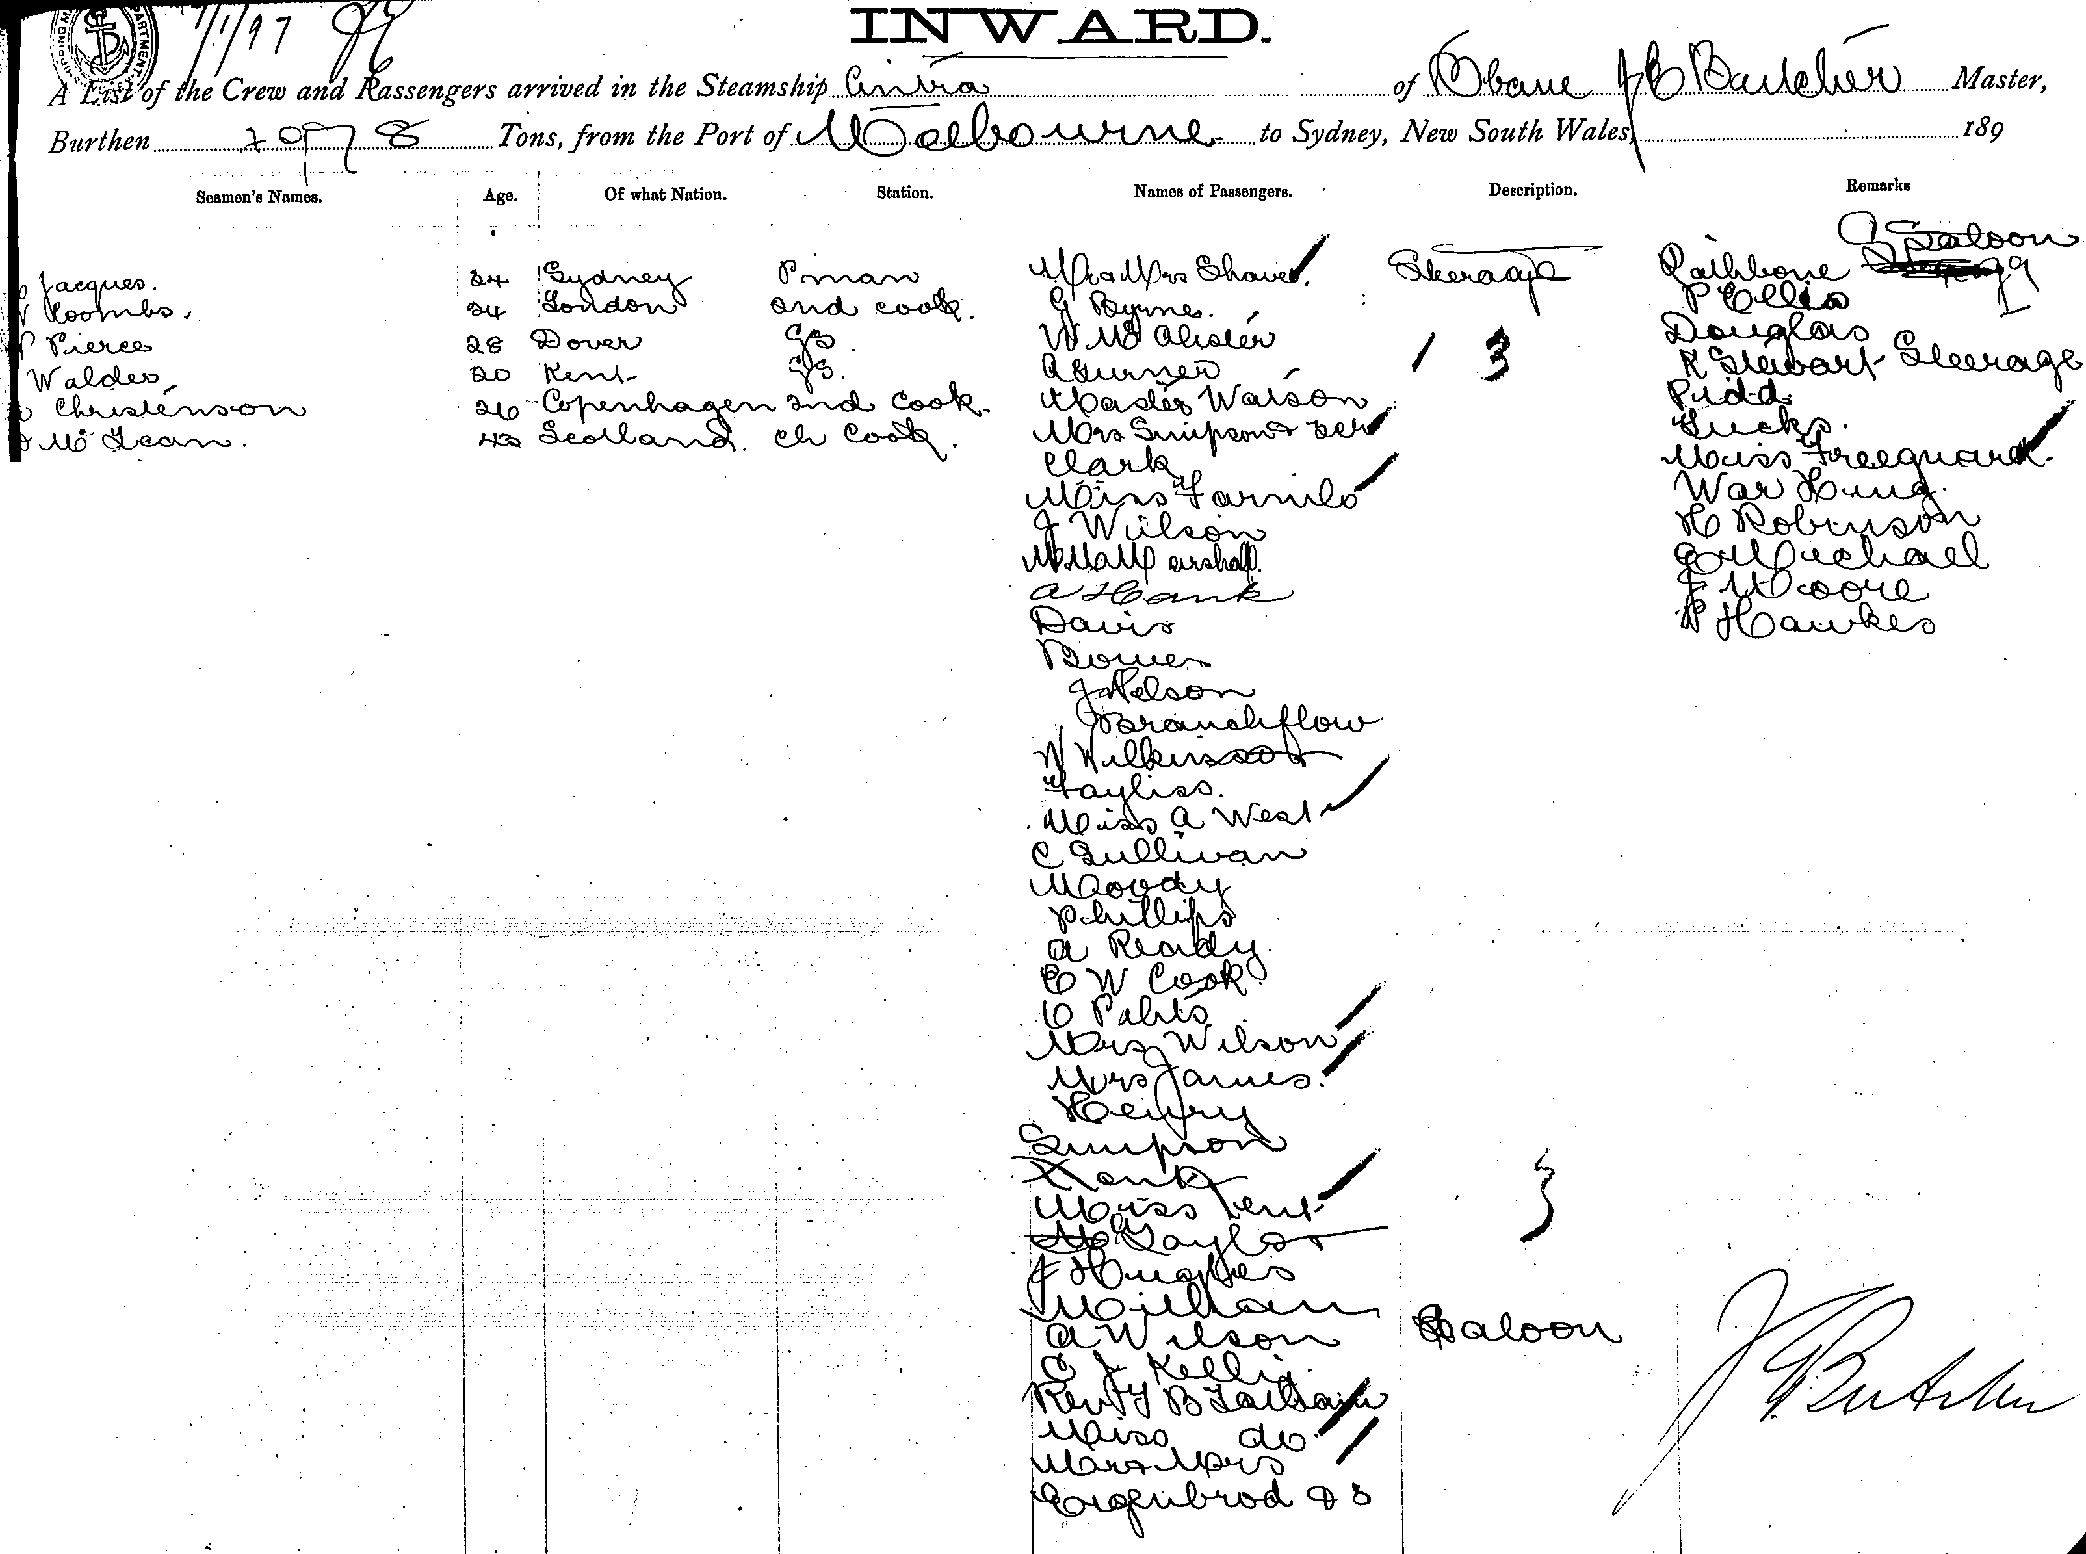 7/1/97
INWARD.
A List of the Crew and Passengers arrived in the Steamship Cintra of Obane J C Butcher Master,
Burthen 1978 Tons, from the Port of Melbourne to Sydney, New South Wales, 189
Seamen's Names. Age. Of what Nation. Station. Names of Passengers. Description. Remarks
Saloon
Jacques. 24 Sydney Pman Mr & Mrs Shaves. Steerage Rathbone
Koombs. 24 London 2nd cook. G Byrnes. P Ellis
Pierce 28 Dover GS. W McAlister 1 3 Douglas
Waldes 20 Kent GS. A Turner R Stewart Steerage
Christenson 26 Copenhagen 2nd cook. Master Watson Pidd
McLean. 43 Scotland. Ch Cook. Mrs Simpson & Tucks.
Clark Miss Freeguard.
Miss Farmilo War Hing.
J Wilson H Robinson
Marshall. Michael
A Hank J Moore
Davis P Hawkes
Bower
J Nelson
J Branchflow
W Wilkinson
Fayliss.
Miss A West
C Sullivan
Moody
Phillips
A Ready
E W Cook
Mrs Wilson
Mrs James.
Henry
Simpson
Hank
Miss Kent 3
Taylor
J Hughes
A Wilson Saloon
C J Kelly
Rev J B
Miss do
Mr & Mrs
& 3
J C Butcher